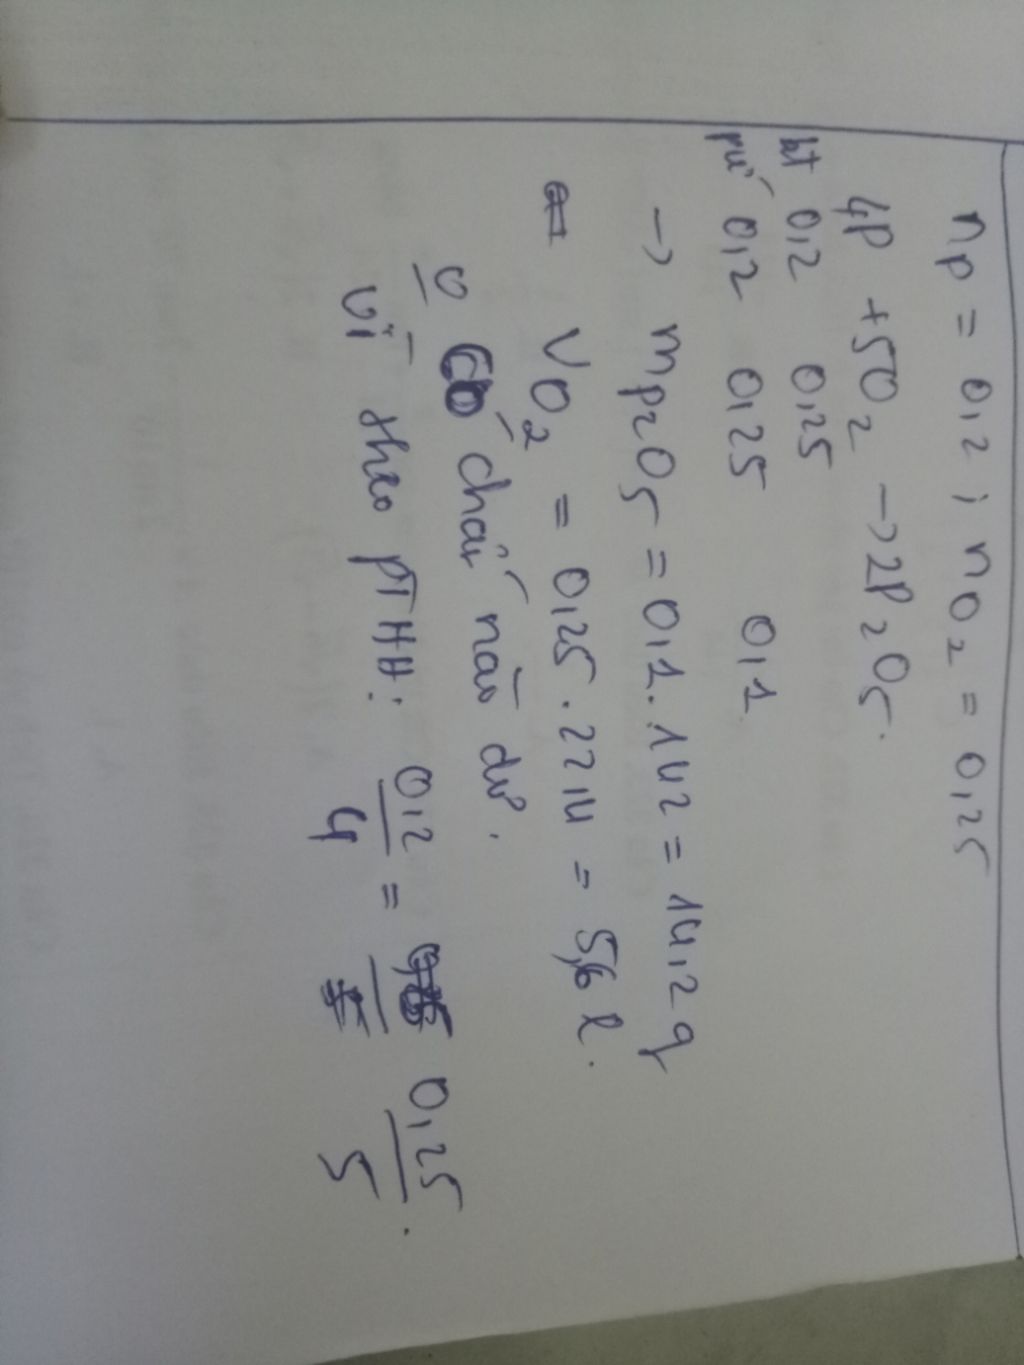 nP = 0,2 ; nO2 = 0,25
4P + 5O2 → 2P2O5.
bđ 0,2 0,25
pứ 0,2 0,25 0,1
→ mP2O5 = 0,1 . 142 = 14,2 g
VO2 = 0,25 . 22,4 = 5,6 l.
chất nào dư.
Vì theo PTHH: 0,2/4 = 0,25/5.